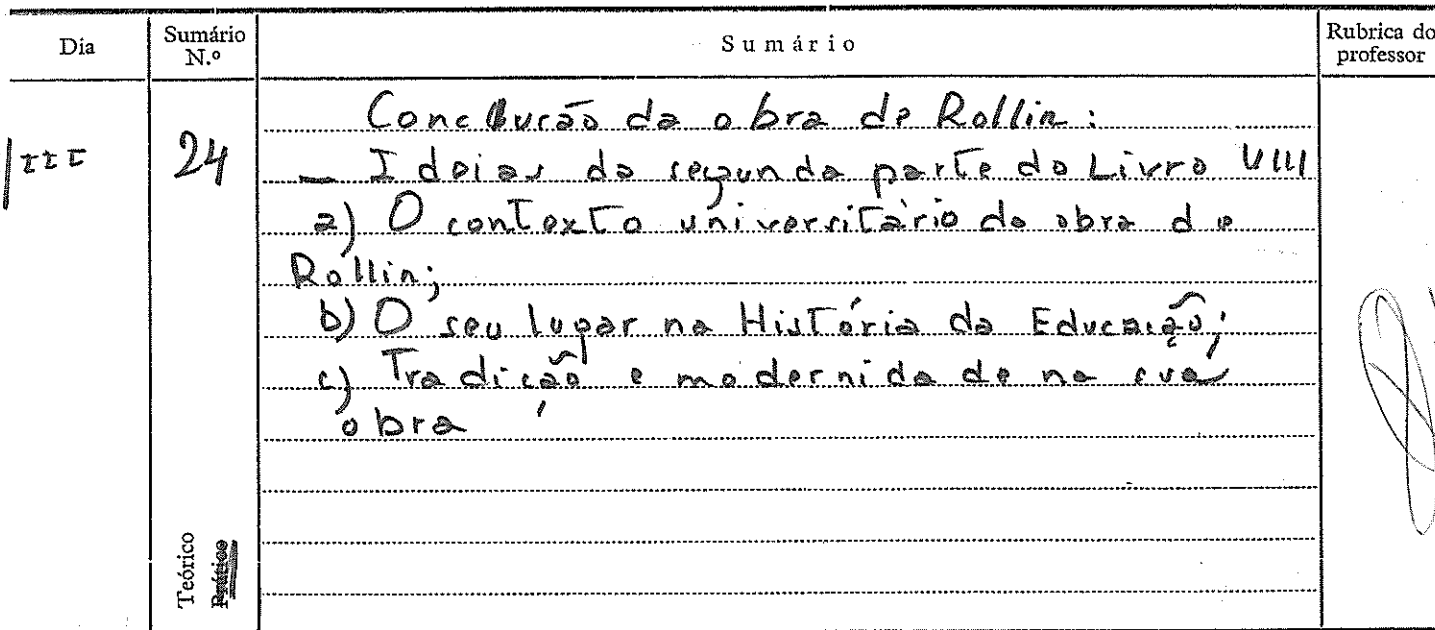 Dia
Sumário N.º
Sumário
Rubrica do professor
24
Conclusão da obra de Rollin:
— Ideias da segunda parte do Livro VIII
a) O contexto universitário da obra de
Rollin;
b) O seu lugar na História da Educação;
c) Tradição e modernidade na sua
obra
Teórico
Prático